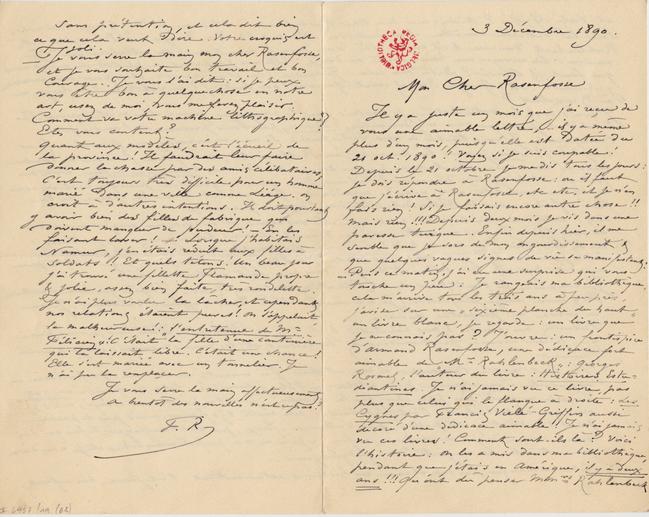 3 Décembre 1890.
BIBLIOTHECA REGIA BELGICA
Mon Cher Rassenfosse
Il y a juste un mois que j'ai reçu de
vous une aimable lettre, – il y a même
plus d'un mois, puisqu'elle est datée du
21 oct. 1890. Voyez si je suis coupable!
Depuis le 21 octobre je me dis tous les jours:
je dois répondre à Rassenfosse: ou il faut
que j'écrive à Rassenfosse, etc etc, et je n'en
fais rien! Si je faisais encore autre chose!!
Mais rien!!! Depuis deux mois je vis dans une
paresse turque. Enfin depuis hier, il me
semble que je sors de mon engourdissement &
que quelques vagues signes de vie se manifestent.
– Puis ce matin, j'ai eu une surprise qui vous
touche un peu: Je rangeais ma bibliothèque,
cela m'arrive tous les trois ans à peu près,
j'avise sur une sixième planche du haut
un livre blanc, je regarde: un livre que
je ne connais pas? J'ouvre: un frontispice
d'Armand Rassenfosse, une dédicace fort
aimable de Mr Rahlenbeck: Georges
Rosmel, l'auteur du livre: Histoires Estu-
diantines. Je n'ai jamais vu ce livre, pas
plus que celui qui le flanque à droite: Les
Cygnes par Francis Vielé-Griffin aussi
décoré d'une dédicace aimable! Je n'ai jamais
vu ces livres! Comment sont-ils là? Voici
l'histoire: on les a mis dans ma bibliothèque,
pendant que j'étais en Amérique, il y a deux
ans!!! Qu'ont du penser Mrs Rahlenbeck
sans prétention, et cela dit bien
ce que cela veut dire. Votre croquis est
joli.
Je vous serre la main mon cher Rassenfosse,
et je vous souhaite bon travail et bon
courage. Je vous l'ai dit: si je peux
vous être bon à quelque chose en notre
art, usez de moi, vous me ferez plaisir.
Comment va votre machine lithographique?
Etes vous content?
Quant aux modèles, c'est l'écueil de
la province! Il faudrait leur faire
donner la chasse par des amis célibataires,
C'est toujours très difficile pour un homme
marié dans une ville comme Liège. On
croit à d'autres intentions. Il doit pourtant
y avoir bien des filles de fabrique qui
doivent manquer de pudeur! – En les
faisant causer! – Lorsque j'habitais
Namur, j'en étais réduit aux filles à
soldats!! Et quels tetons! Un beau jour
j'ai trouvé une fillette flamande propre
& jolie, assez bien faite, très rondelette.
Je n'ai plus voulu la lâcher, et cependant,
nos relations étaient pures! On l'appelait
la malheureuse: "l'entretenue de Mr
Félicien"; C'était la fille d'une cantinière
qui la laissait libre. C'était une chance!
Elle s'est mariée avec un tonnelier. Je
n'ai pu la remplacer.
Je vous serre la main affectueusement
a bientôt des nouvelles n'est ce pas?
F. R